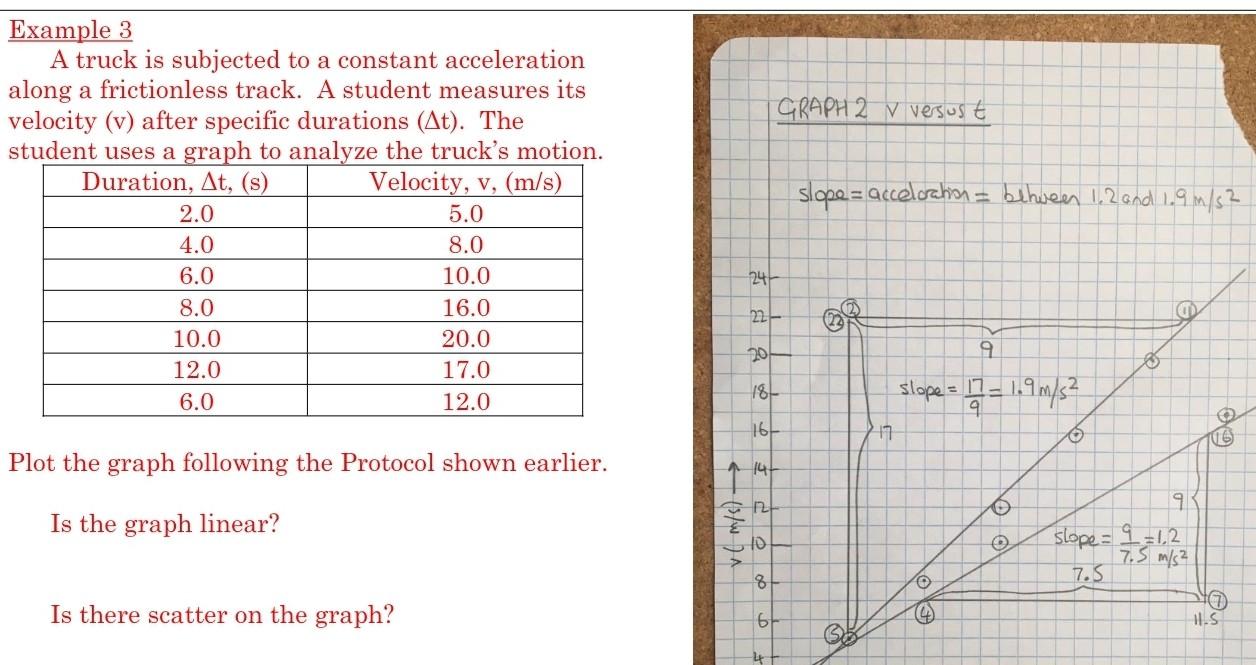 Example 3
A truck is subjected to a constant acceleration
along a frictionless track. A student measures its
velocity (v) after specific durations (Δt). The
student uses a graph to analyze the truck's motion.
Duration, Δt, (s) Velocity, v, (m/s)
2.0 5.0
4.0 8.0
6.0 10.0
8.0 16.0
10.0 20.0
12.0 17.0
6.0 12.0
Plot the graph following the Protocol shown earlier.
Is the graph linear?
Is there scatter on the graph?
GRAPH 2 v versus t
slope = acceloration = between 1.2 and 1.9 m/s²
24
22
20
18
16
14
12
10
8
6
4
v (m/s)
22 2 11
9
slope = 17/9 = 1.9 m/s²
17
16
9
slope = 9/7.5 = 1.2 m/s²
7.5
4 7
11.5
5